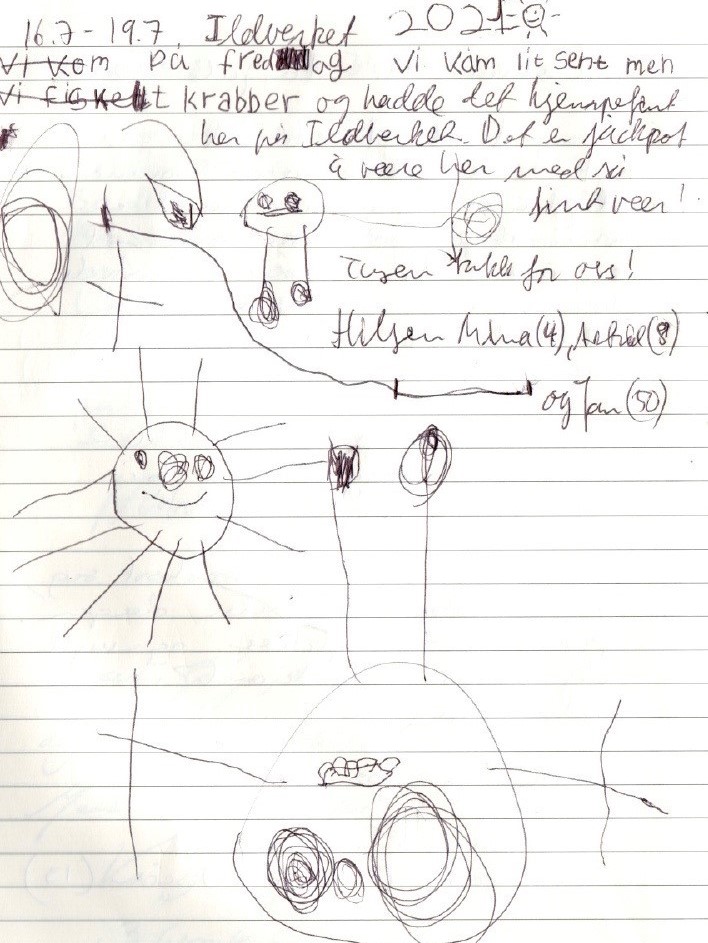 16.7-19.7. Ildverket 2021
Vi kom på fredag vi kåm lit sent men
Vi fisket krabber og hadde det kjempefint
her på Ildverket. Det er jackpot
å være her med så
fint veer!
Tusen takk for oss!
Hilsen Mina(4), Astrid(8)
og Jan (50)